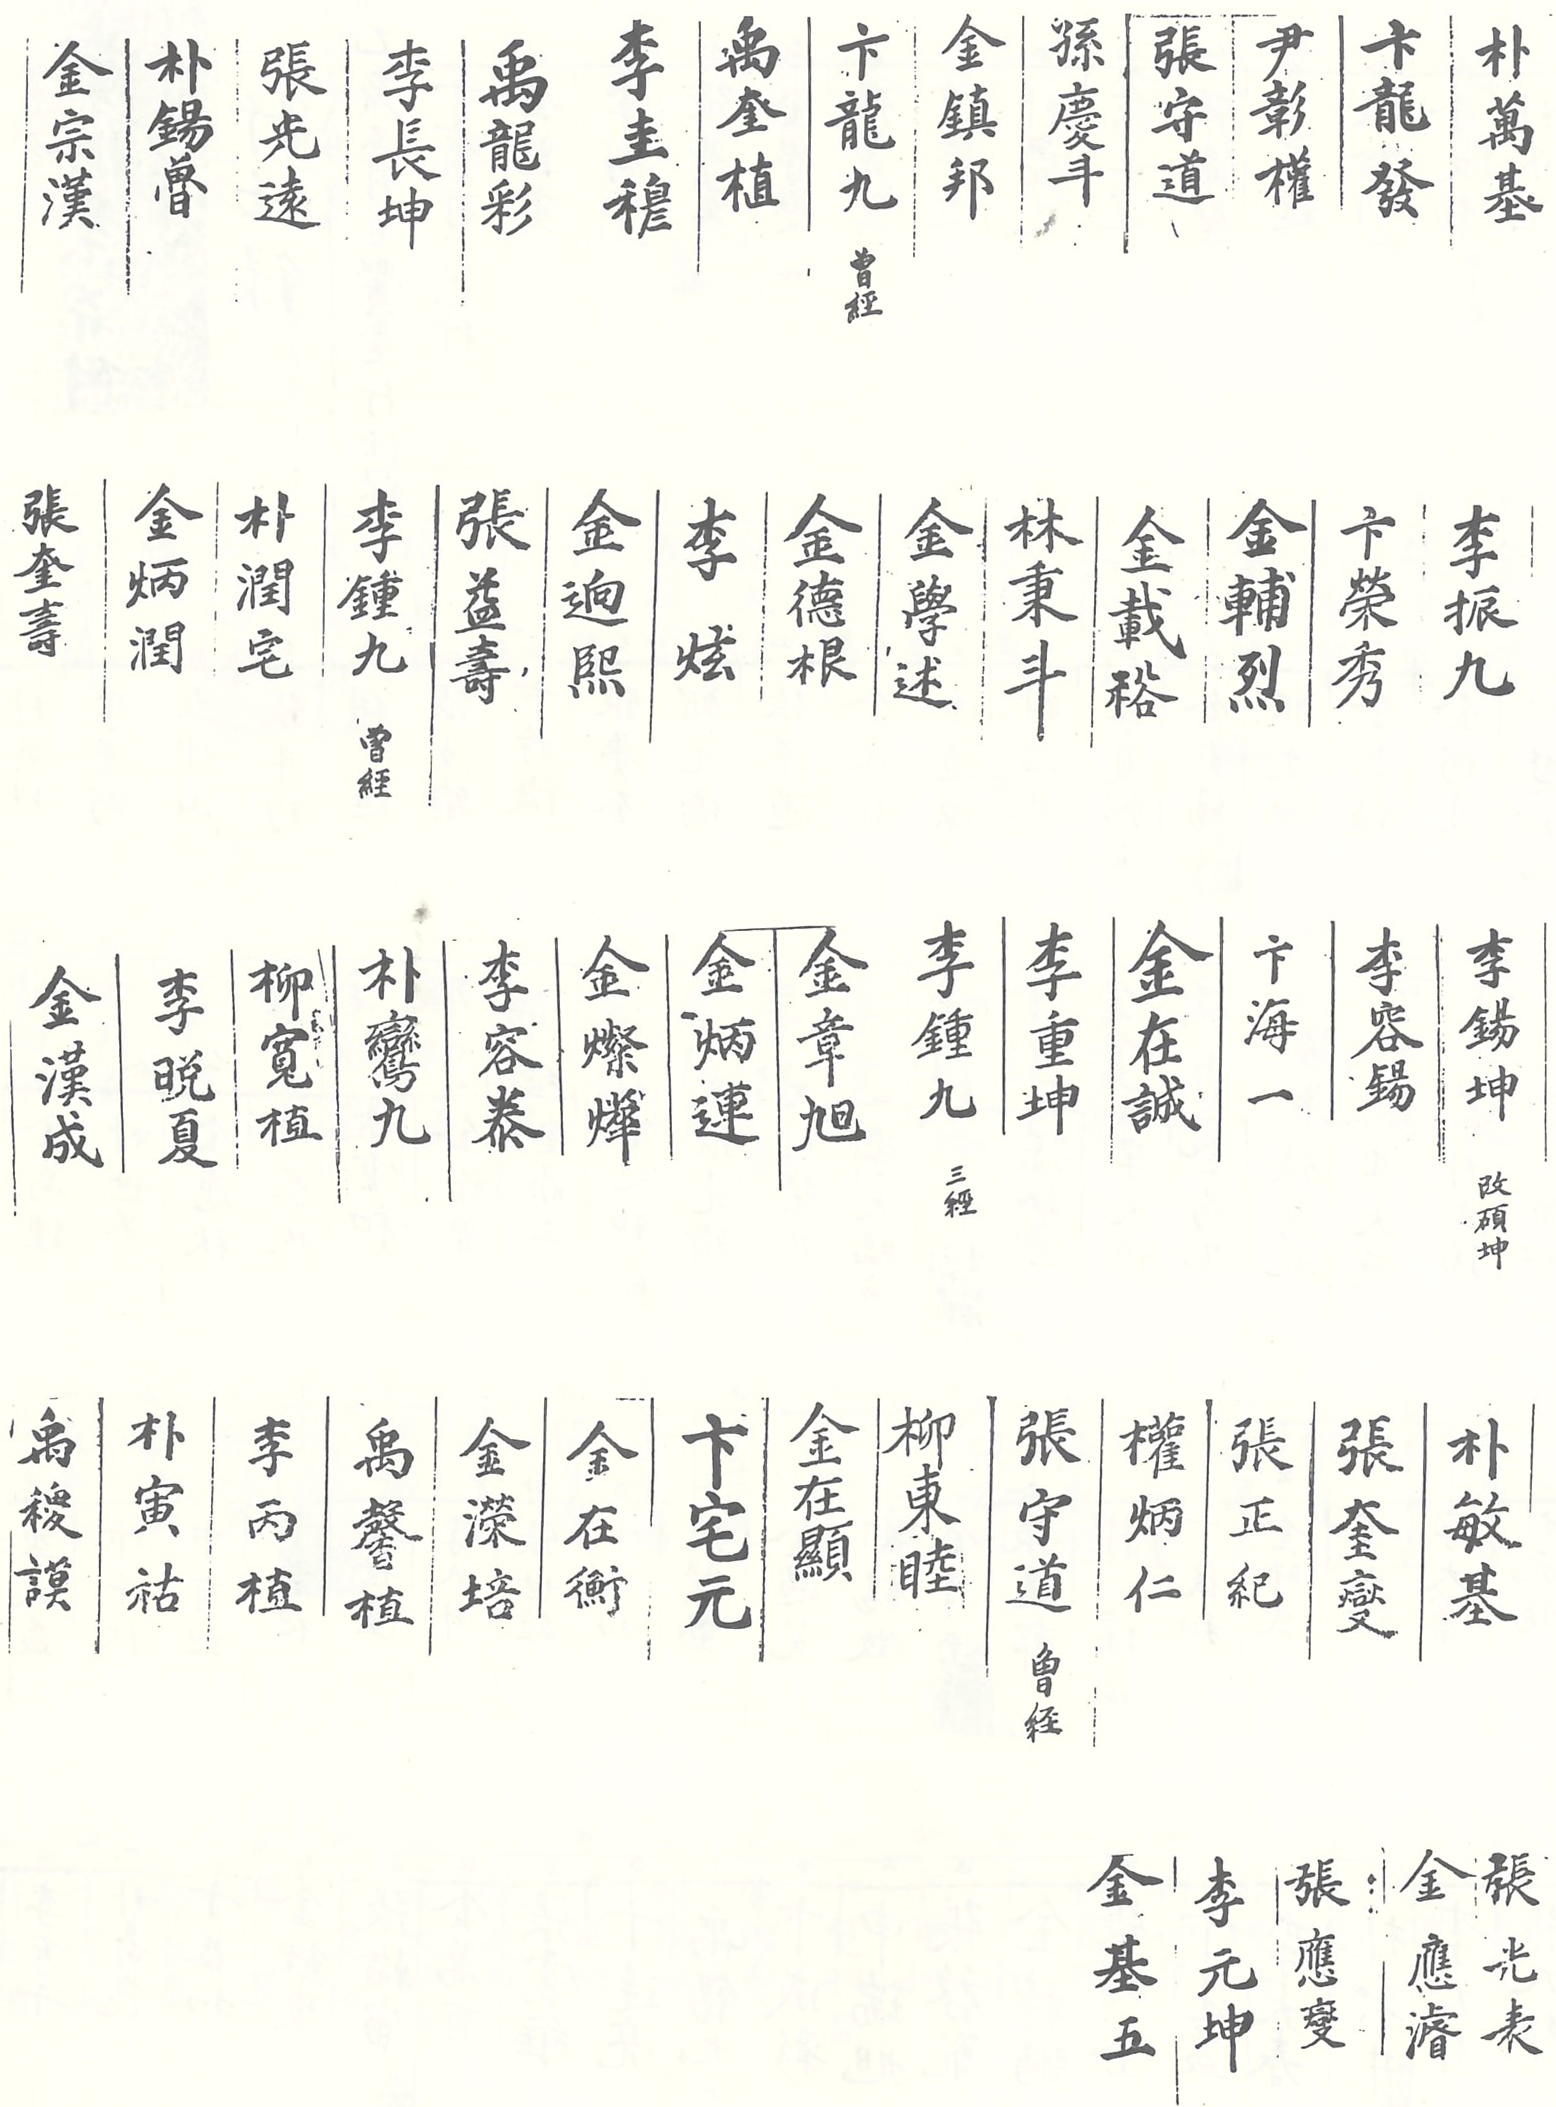 朴萬基
卞龍發
尹彰權
張守道
孫慶斗
金鎮邦
卞龍九 曾經
禹奎植
李圭穆
禹龍彩
李長坤
張光遠
朴錫曾
金宗漢
李振九
卞榮秀
金輔烈
金載裕
林秉斗
金學述
金德根
李炫
金逈熙
張益壽
李鍾九 曾經
朴潤宅
金炳潤
張奎壽
李錫坤 改碩坤
李容錫
卞海一
金在誠
李重坤
李鍾九 三經
金章旭
金炳運
李容泰
金燦燁
朴鸞九
柳寬植
李晩夏
金漢成
朴敏基
張奎燮
張正紀
權炳仁
張守道 曾経
柳東睦
金在顯
卞宅元
金在衡
金濚培
禹馨植
李丙植
朴寅祜
禹稷謨
張光表
金應濬
張應燮
李元坤
金基五